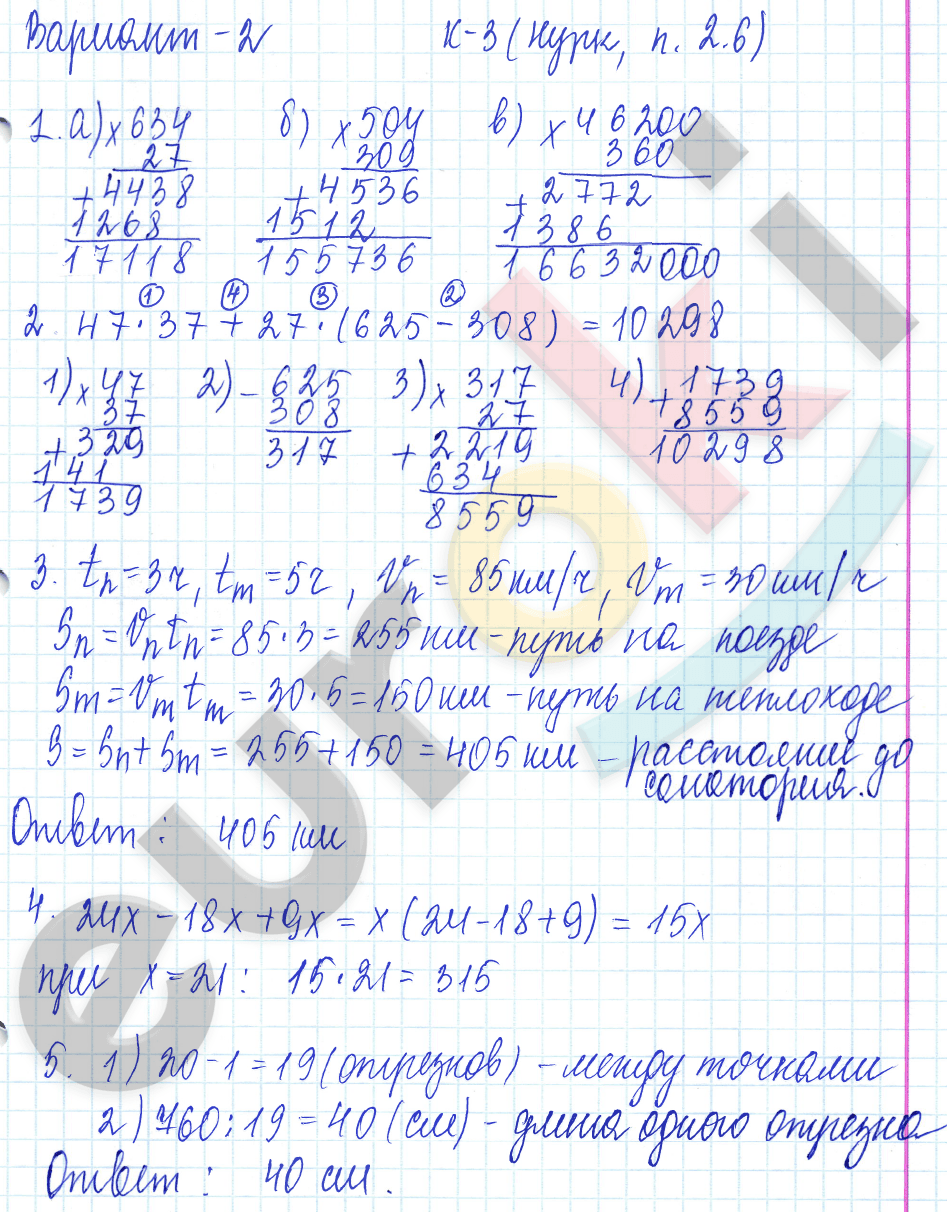 Вариант - 2 К-3 (Нурк, п. 2.6)
1. а) × 634 б) × 504 в) × 46200
27 309 360
+ 4438 + 4536 + 2772
1268 1512 1386
17118 155736 16632000
① ④ ③ ②
2. 47 · 37 + 27 · (625 - 308) = 10298
1) × 47 2) - 625 3) × 317 4) + 1739
37 308 27 8559
+ 329 317 + 2219 10298
141 634
1739 8559
3. tп = 3ч, tт = 5ч, Vп = 85 км/ч, Vт = 30 км/ч
Sп = Vп tп = 85 · 3 = 255 км - путь на поезде
Sт = Vт tт = 30 · 5 = 150 км - путь на теплоходе
S = Sп + Sт = 255 + 150 = 405 км - расстояние до
санатория.
Ответ: 405 км
4. 24x - 18x + 9x = x (24 - 18 + 9) = 15x
при x = 21: 15 · 21 = 315
5. 1) 20 - 1 = 19 (отрезков) - между точками
2) 760 : 19 = 40 (см) - длина одного отрезка
Ответ: 40 см.
euroki